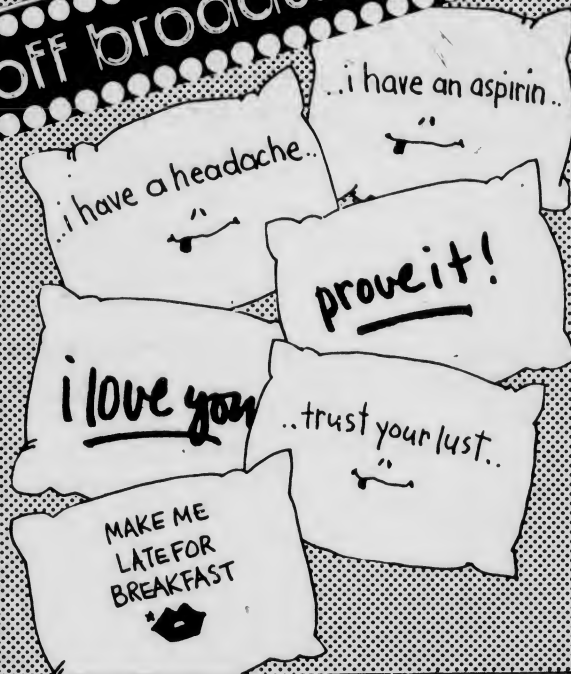 off
..i have an aspirin..
..i have a headache..
prove it!
i love you
..trust your lust..
MAKE ME
LATE FOR
BREAKFAST